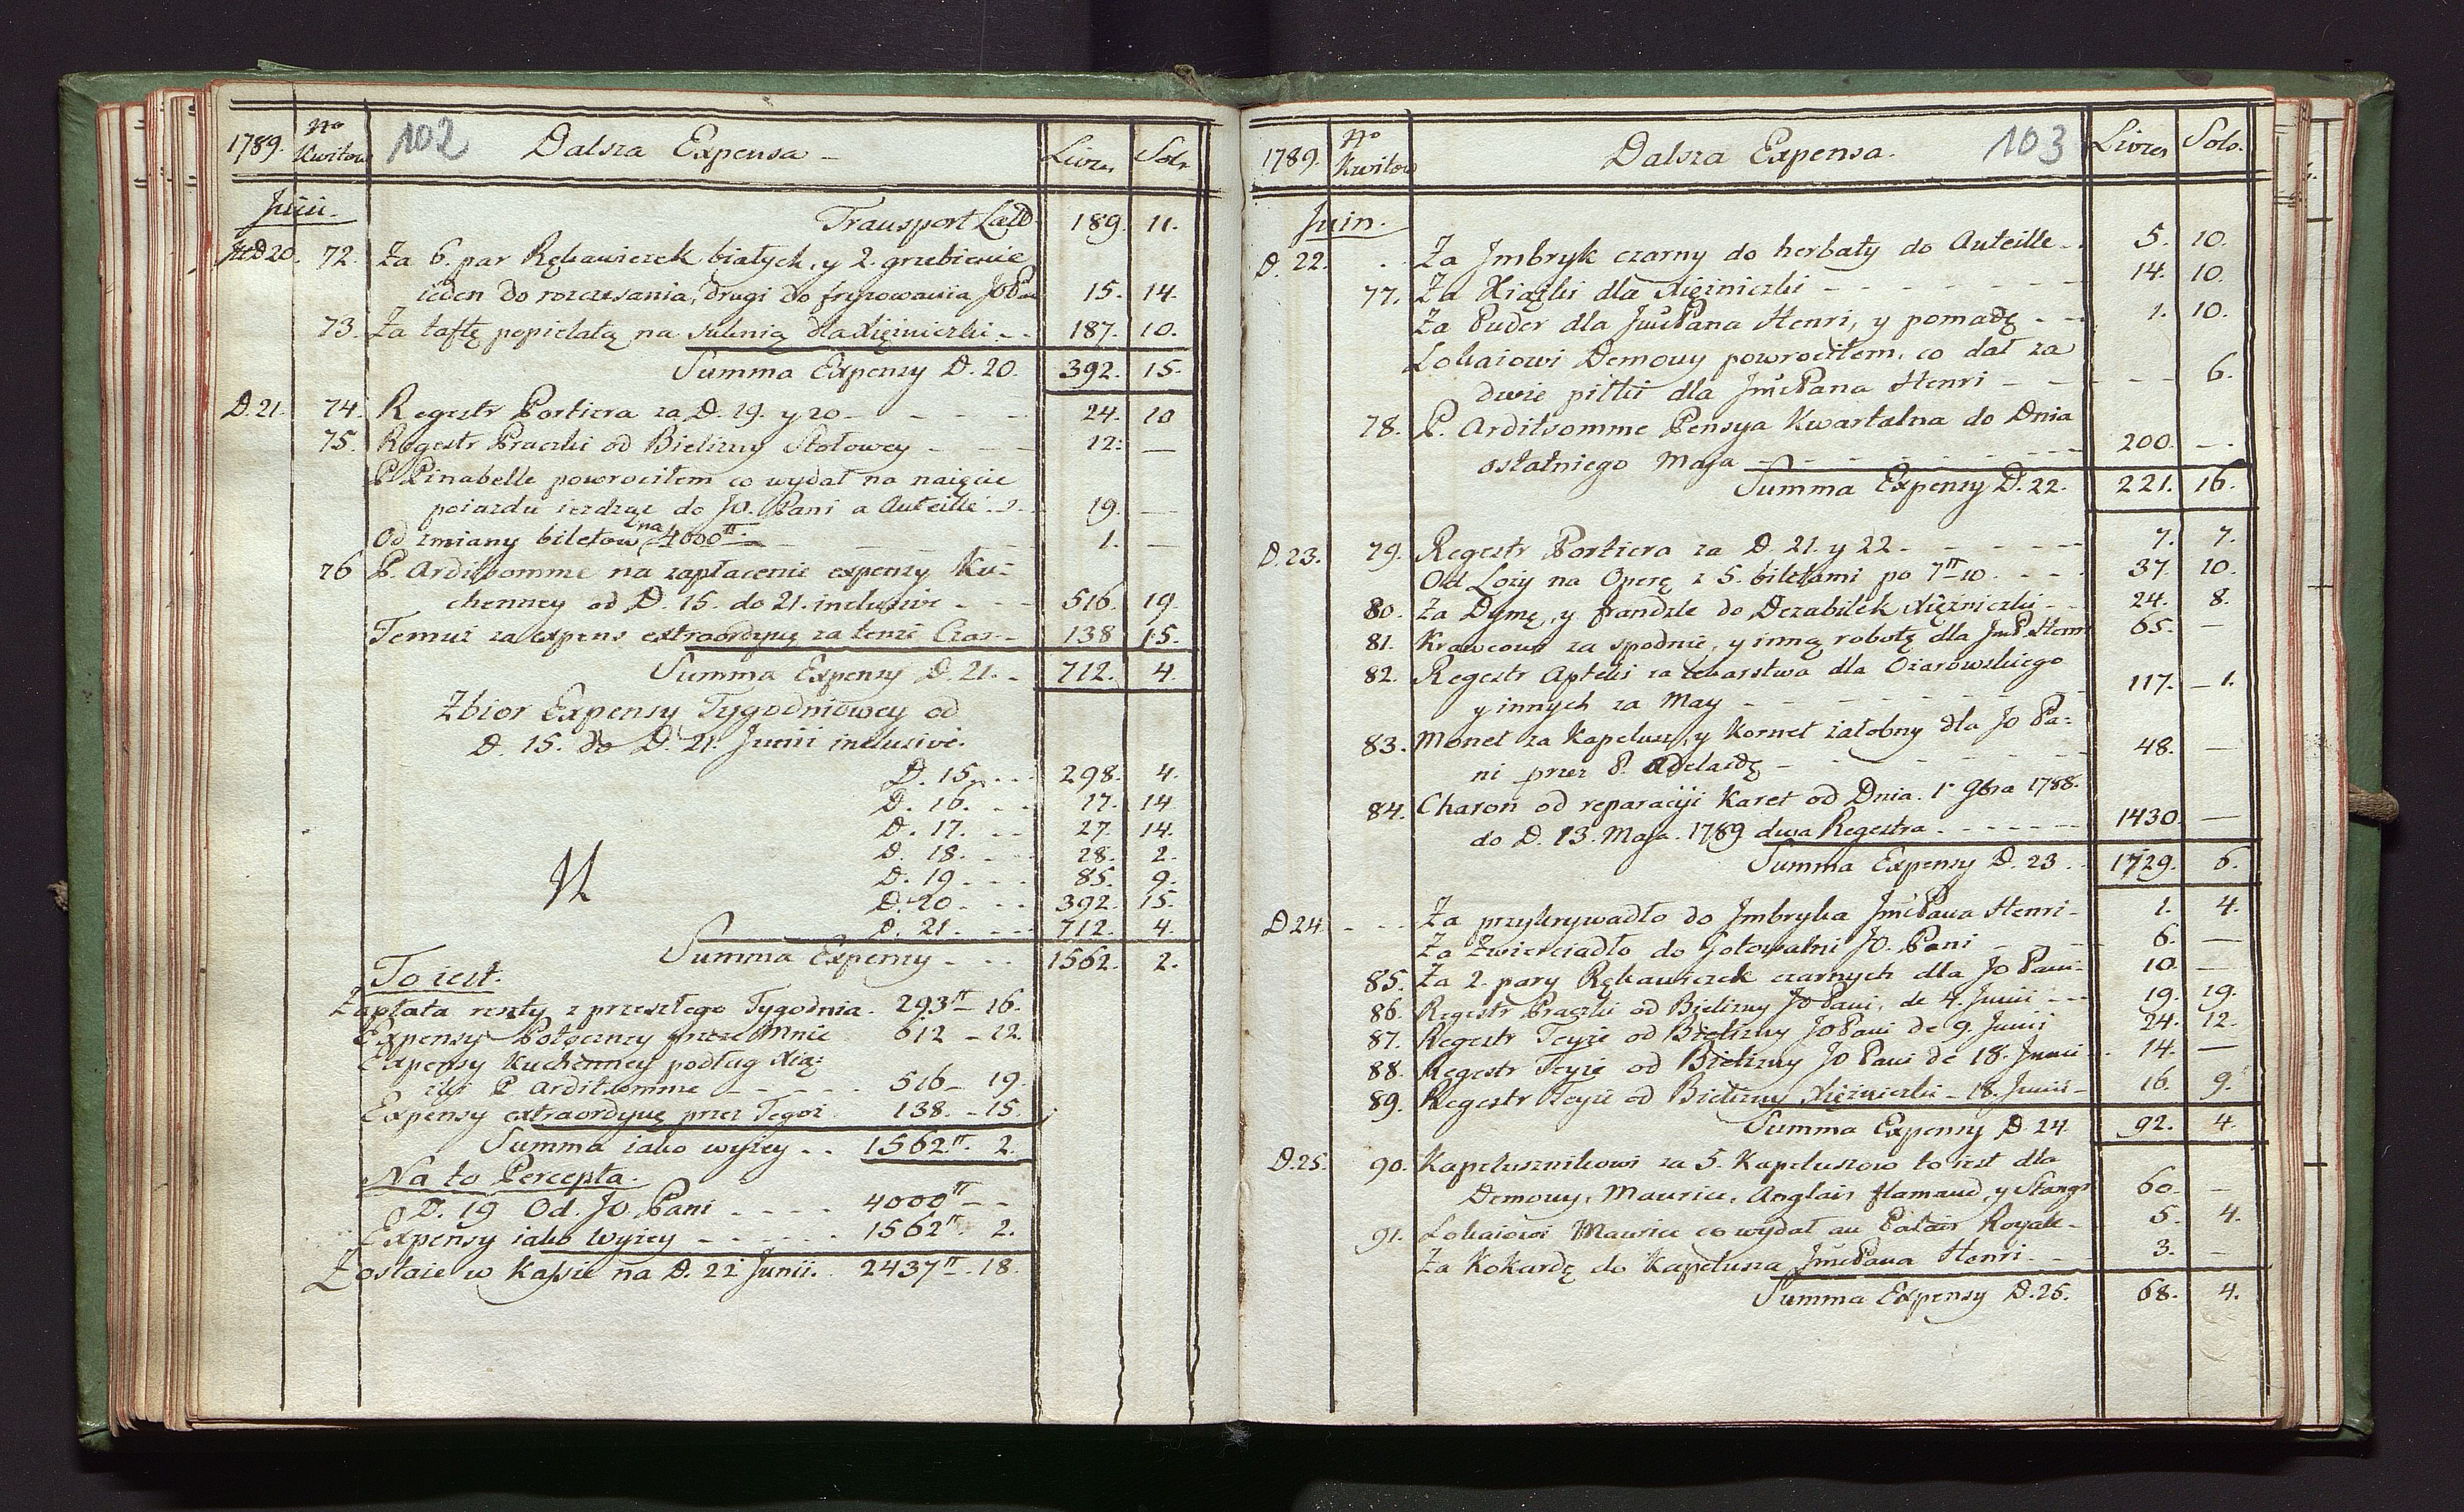 1789. No Kwitow 102 Dalsza Expensa - Livres Sols
Junii.
Transport Lattò 189. 11.
D 20. 72. Za 6. par Rękawiczek białych, y 2. grzebienie
ieden do rozczesania, drugi do fryzowania JO Pani 15. 14.
73. Za taftę popielatą na suknią dla Xiężniczki - - 187. 10.
Summa Expensy D. 20. 392. 15.
D. 21. 74. Regestr Portiera za D. 19. y 20 - - - - 24. 10
75. Regestr Praczki od Bielizny Stołowey - - - 12: —
P. Pinabelle powrociłem co wydał na naięcie
poiazdu iezdząc do JO. Pani a Auteille - - 19. —
Od zmiany biletow na 4000 tt - - - - - 1. —
76 P. Arditsomme na zapłacenie expensy Ku=
chenney od D. 15. do 21. inclusive - - - 516. 19.
Temuż za expens extraordynę za tenże Czas - 138 15.
Summa Expensy D. 21. - 712. 4.
Zbior Expensy Tygodniowey od
D. 15. do D. 21. Junii inclusive.
D. 15. - - - 298. 4.
D. 16. - - - 17. 14
D. 17. - - 27. 14.
D. 18. - - - 28. 2.
D. 19. - - - 85. 9.
D. 20. - - - 392. 15.
D. 21. - - - 712. 4.
Summa Expensy - - - 1562. 2.
To iest.
Zapłata reszty z przeszłego Tygodnia. 293 tt - 16.
Expensy Potoczney przeze Mnie 612 - 12.
Expensy Kuchenney podług Xią=
żki P. Arditsomme - - - - 516 - 19.
Expensy extraordynę przez Tegoż. 138. - 15.
Summa iako wyżey . . 1562 tt. 2.
Na to Percepta.
D. 19 Od. JO. Pani - - - - 4000 tt - -
Expensy iako wyżey - - - - - - 1562 tt. 2.
Zostaie w Kassie na D. 22 Junii. 2437 tt. 18.
1789. No Kwitow Dalsza Expensa. 103 Livres Sols.
Juin.
D. 22. . . Za Jmbryk czarny do herbaty do Auteille - . 5. 10.
77. Za Xiążki dla Xiężniczki - - - - - - - 14. 10.
Za Puder dla JmćPana Henri, y pomadę - - 1. 10.
Lokaiowi Demouy powrociłem, co dał za
dwie piłki dla JmćPana Henri - - - - 6.
78. P. Arditsomme Pensya Kwartalna do Dnia
ostatniego Maja - - - - - - - - 200. - .
Summa Expensy D. 22. 221. 16.
D. 23. 79. Regestr Portiera za D. 21. y 22 - - - - - - 7. 7.
Od Loży na Operę z 5. biletami po 7 tt - 10. - - - 37. 10.
80. Za Dymę, y frandzle do Dezabilek Xiężniczki - - 24. 8.
81. Krawcowi za spodnie, y inną robotę dla JmćP. Henri 65. —
82. Regestr Apteki za lekarstwa dla Ożarowskiego
y innych za May - - - - - - - - 117. - 1.
83. Monet za Kapelusz, y Kornet żałobny dla JO Pa=
ni przez P. Adelaidę - - - - - - - - 48. —
84. Charon od reparacyi Karet od Dnia. 1o 9bra 1788.
do D. 13. Maja. 1789 dwa Regestra. - - - - - - 1430. —
Summa Expensy D. 23 . . 1729. 6.
D 24. - - . Za przykrywadło do Jmbryka JmćPana Henri - 1. 4.
Za Zwierciadło do Gotowalni JO. Pani - - - 6. —
85. Za 2. pary Rękawiczek czarnych dla JO Pani - 10. —
86. Regestr Praczki od Bielizny JO Pani, de 4. Junii - - - 19. 19.
87. Regestr Teyże od Bielizny JO Pani de 9. Junii 24. 12.
88. Regestr Teyże od Bielizny JO Pani de 18. Junii - . 14. —
89. Regestr Teyże od Bielizny Xiężniczki - 18. Junii - 16. 9.
Summa Expensy D. 24. 92. 4.
D. 25. 90. Kapelusznikowi za 5. Kapeluszow to iest dla
Demouy, Maurice, Anglais flamand, y Stangr 60. —
91. Lokaiowi Maurice co wydał au Palais Royale - 5. 4.
Za Kokardę do Kapelusza JmćPana Henri. - - 3. —
Summa Expensy D. 25. 68. 4.